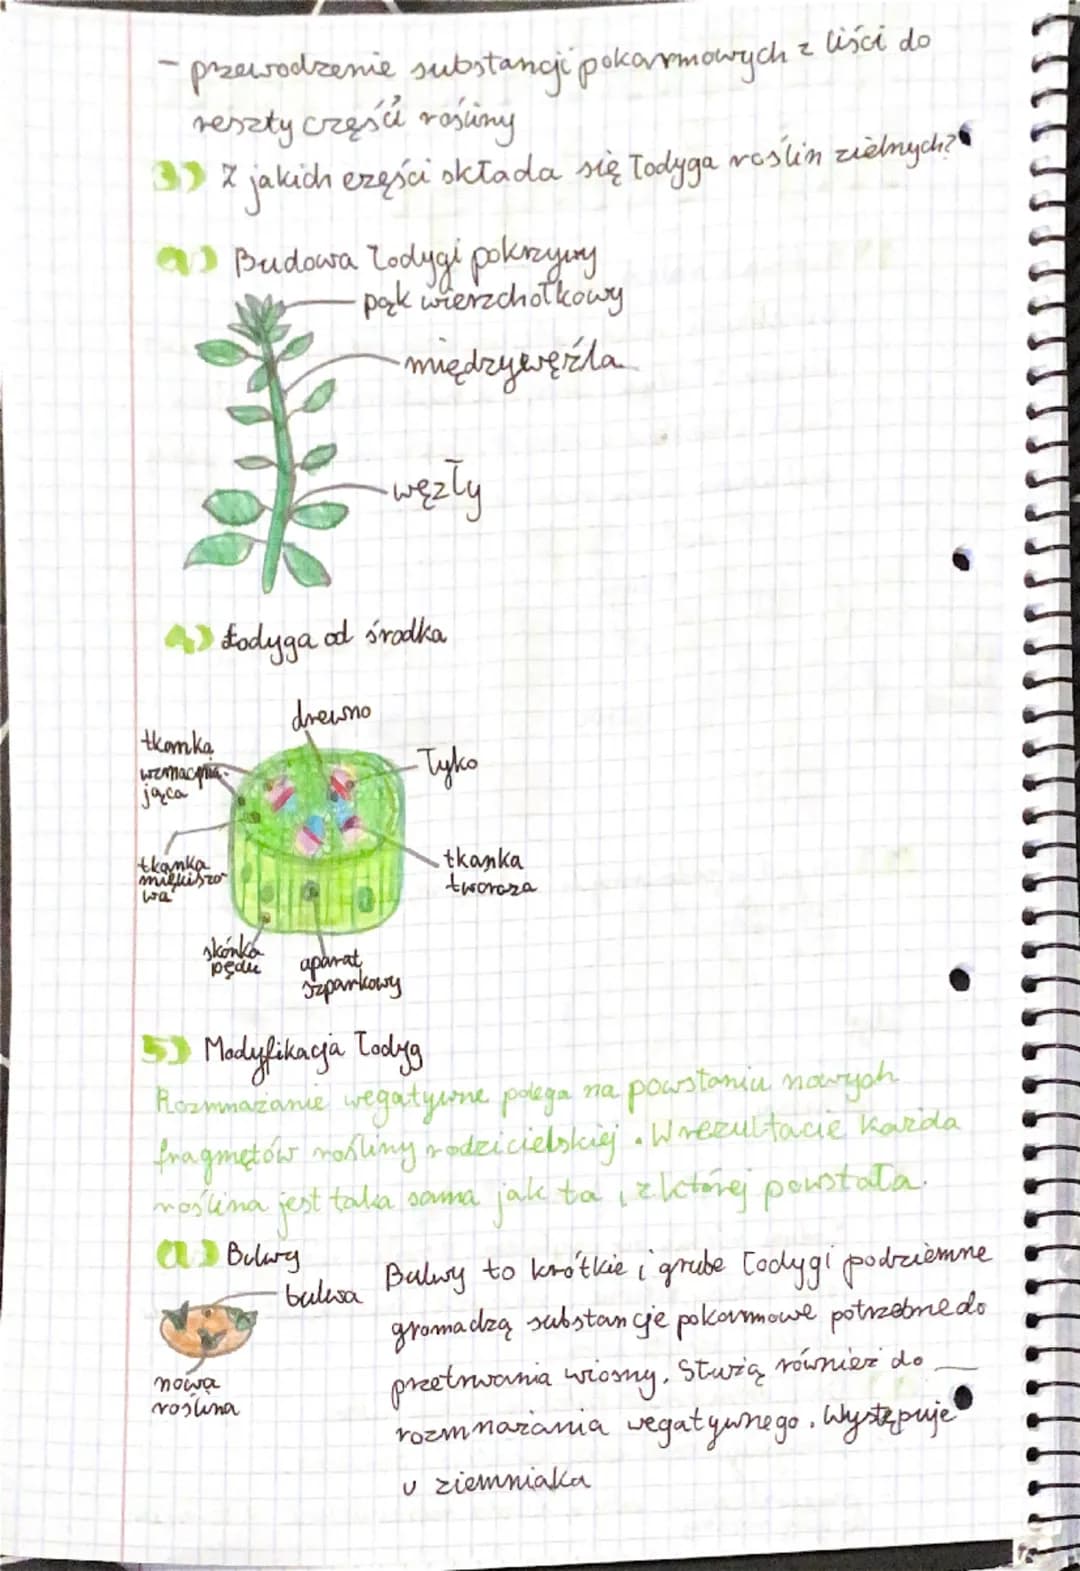 - przewodzenie substancji pokarmowych z liści do
reszty części rośliny
3) Z jakich części składa się łodyga roślin zielnych?
a) Budowa łodygi pokrzywy
pąk wierzchołkowy
międzywęźla
węzły
4) Łodyga od środka
drewno
tkanka
wzmacnia-
jąca
łyko
tkanka
miękiszo
wa
tkanka
tworcza
skórka
pędu
aparat
szparkowy
5) Modyfikacja łodyg
Rozmnażanie wegatywne polega na powstaniu nowych
fragmętów rośliny rodzicielskiej. W rezultacie każda
roślina jest taka sama jak ta, z której powstała.
a) Bulwy
bulwa
nowa
roślina
Bulwy to krótkie i grube łodygi podziemne
gromadzą substancje pokarmowe potrzebne do
przetrwania wiosny. Służą również do
rozmnażania wegatywnego. Występuje
u ziemniaka